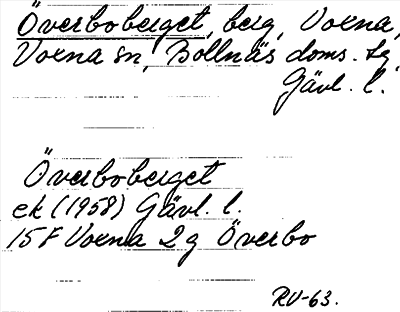 Överboberget, berg, Voxna,
Voxna sn, Bollnäs doms. tg
Gävl. l.
Överboberget
ek (1958) Gävl. l.
15F Voxna 2g Överbo
RV-63.